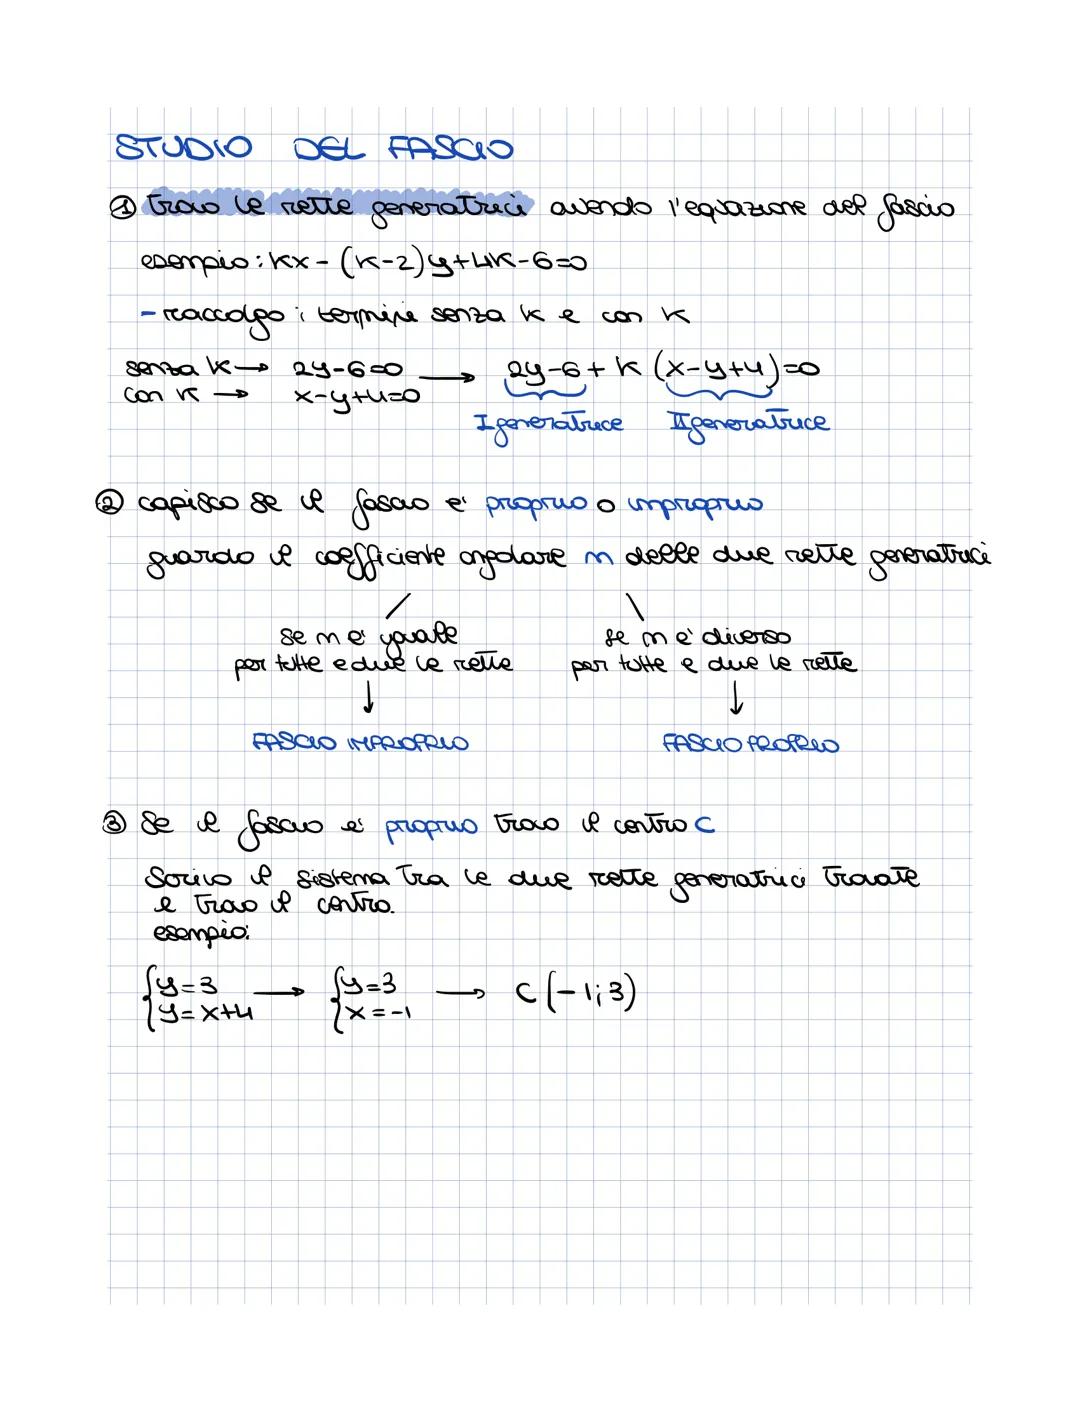 STUDIO DEL FASCIO
① trovo le rette generatrici avendo l'equazione del fascio
esempio: kx - (k-2)y+4k-6=0
- raccolgo i termini senza k e con k
senza k → 2y-6=0 → 2y-6+k(x-y+4)=0
con k → x-y+4=0
I generatrice II generatrice
② capisco se il fascio e' proprio o improprio
guardo il coefficiente angolare m delle due rette generatrici
se m e' uguale se m e' diverso
per tutte e due le rette per tutte e due le rette
↓ ↓
FASCIO IMPROPRIO FASCIO PROPRIO
③ Se il fascio e' proprio trovo il centro C
Scrivo il sistema tra le due rette generatrici trovate
e trovo il centro.
esempio:
{y=3 → {y=3 → C(-1;3)
{y=x+4 {x=-1